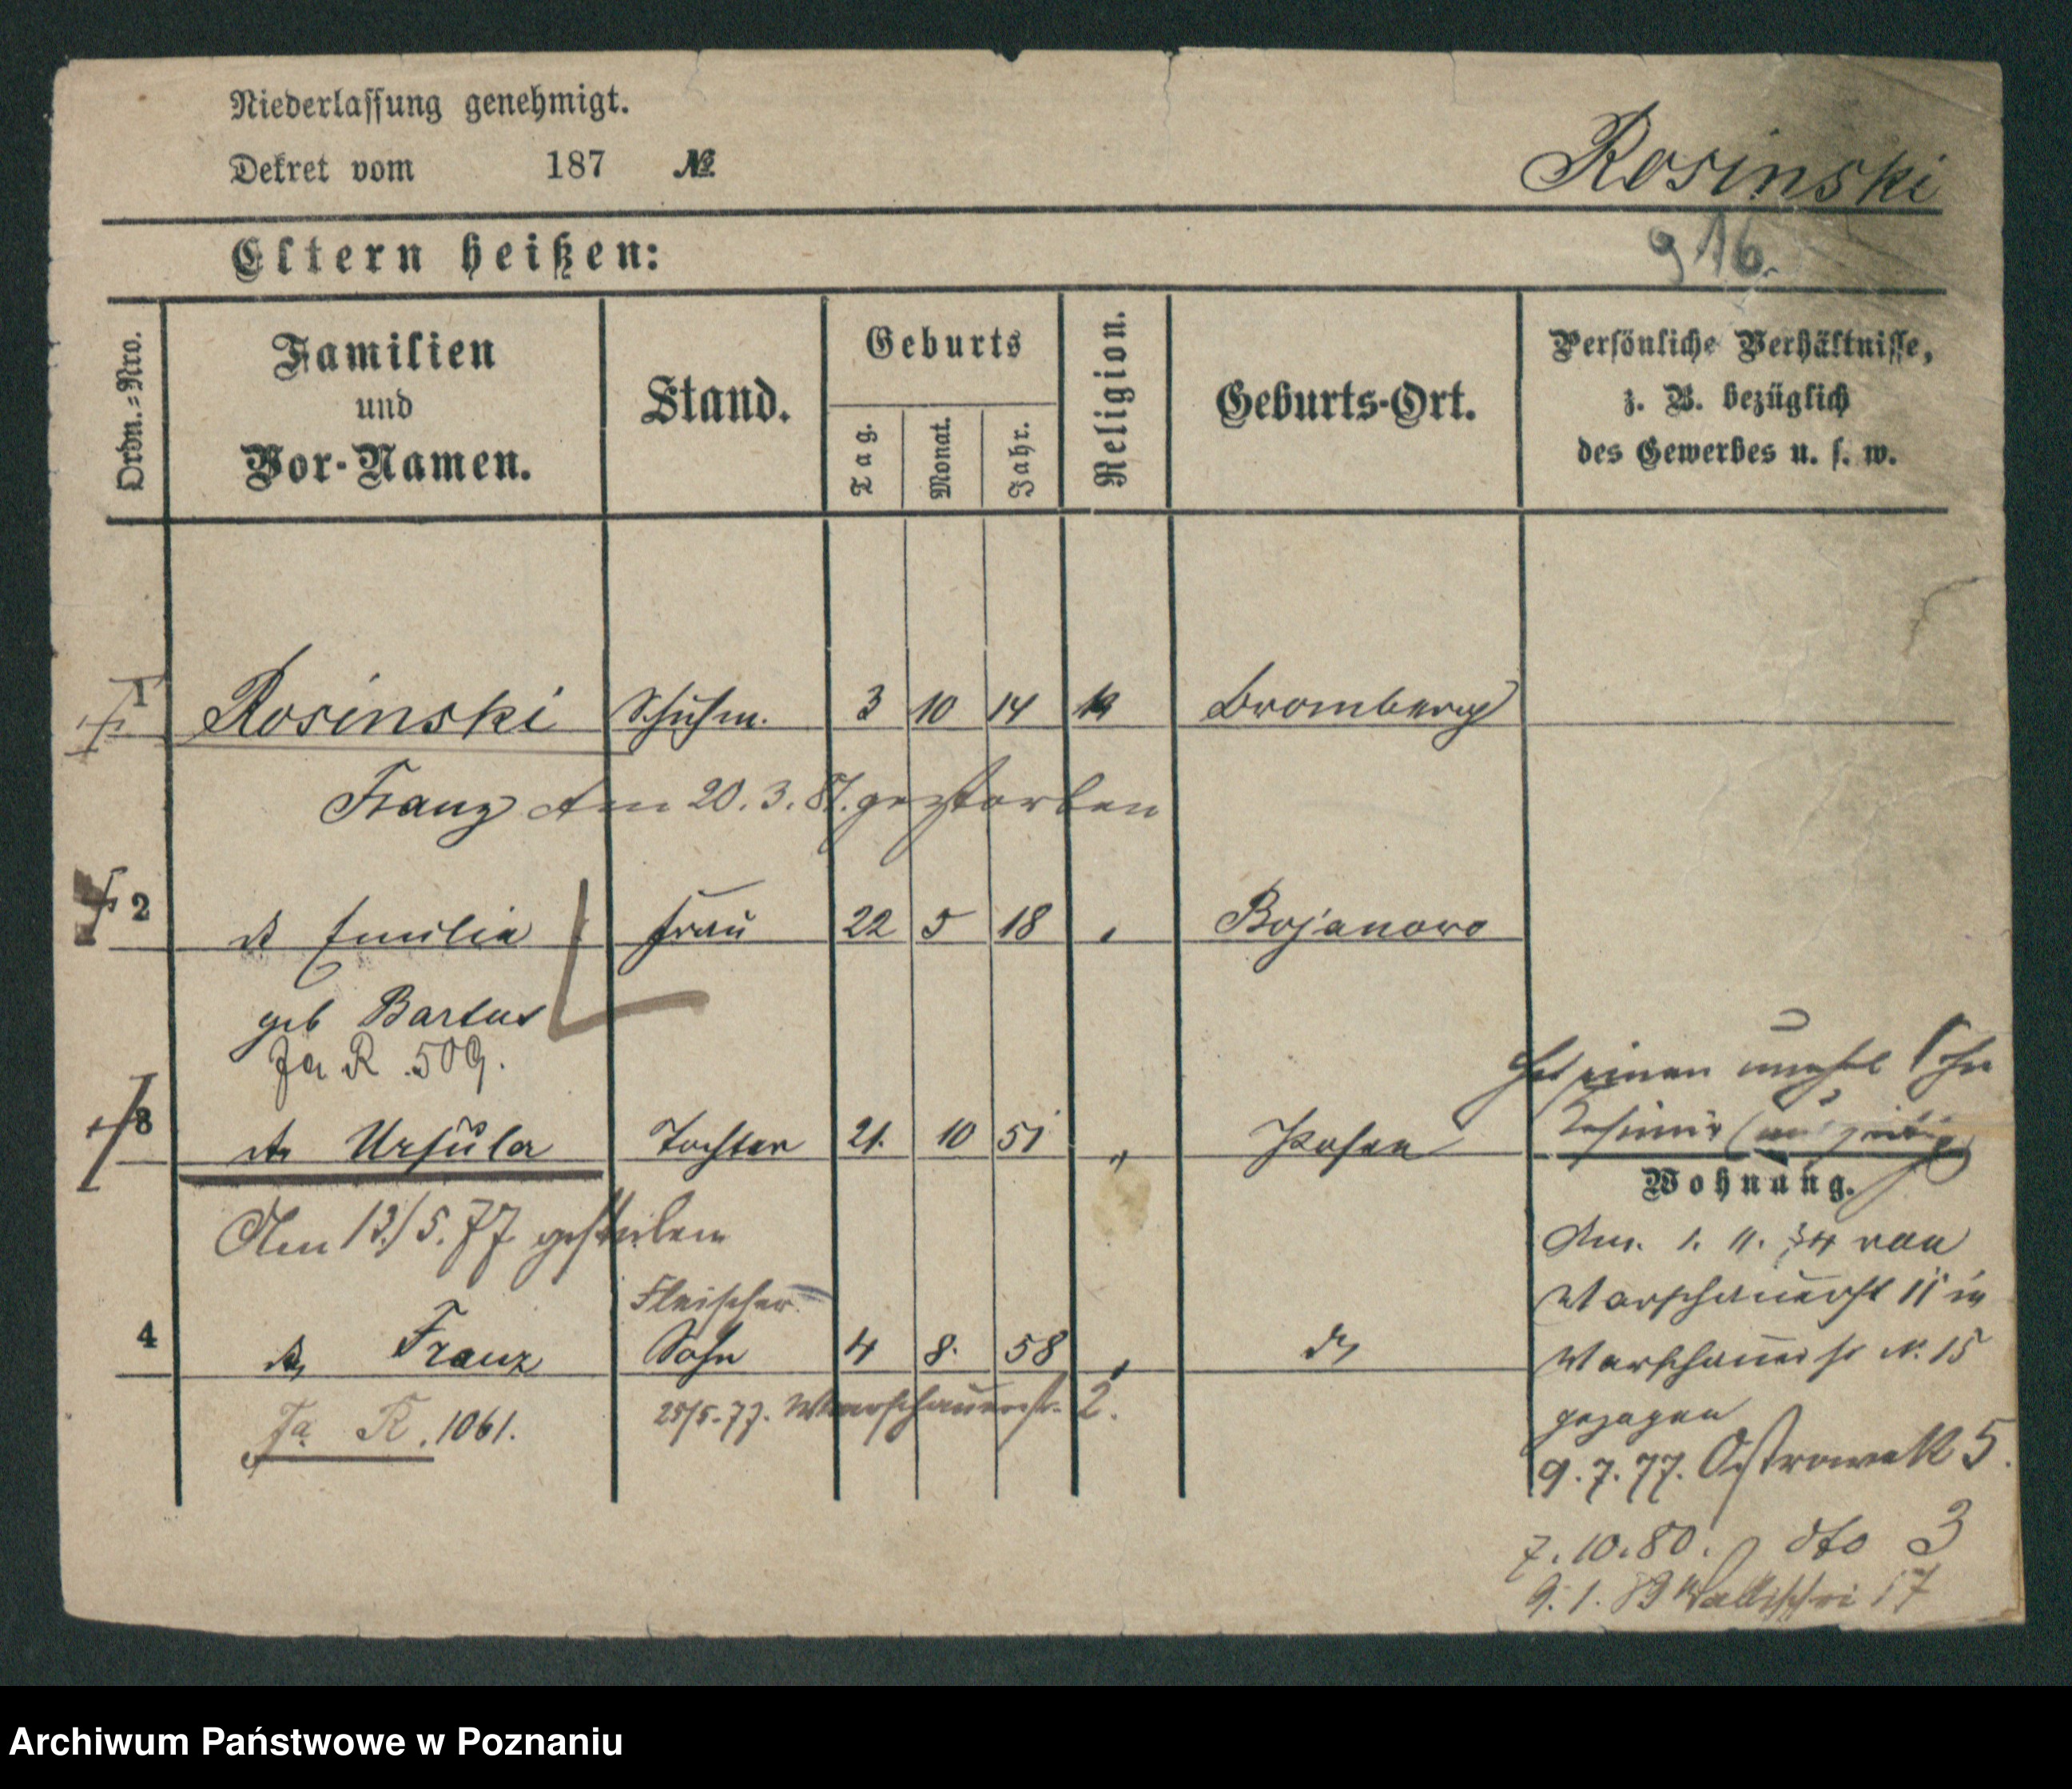 Niederlassung genehmigt.
Dekret vom 187 №
Rosinski
916.
Eltern heißen:
Ordn.=Nro.
Familien und Vor-Namen.
Stand.
Geburts
Tag. Monat. Jahr.
Religion.
Geburts-Ort.
Persönliche Verhältnisse,
z. B. bezüglich
des Gewerbes u. s. w.
1 Rosinski Schuhm. 3 10 14 k Bromberg
Franz Am 20.3.87. gestorben
2 do Emilia Frau 22 5 18 " Bojanowo
geb Bartus
Fa R. 509.
Hat einen unehel Sohn
Kasimir
3 do Ursula Tochter 21. 10 51 " Posen
Wohnung.
Am 13/5.77 gestorben
Am. 1. 11. 74 von
Warschauerst 11 in
Fleischer
4 do Franz Sohn 4 8. 58 " do
Warschauerst N. 15
gezogen
Fa R. 1061.
25/5.77. Warschauerstr. 2.
9.7.77. Ostrowek 5.
7.10.80. dto 3
9.1.83 Wallischei 17
Archiwum Państwowe w Poznaniu